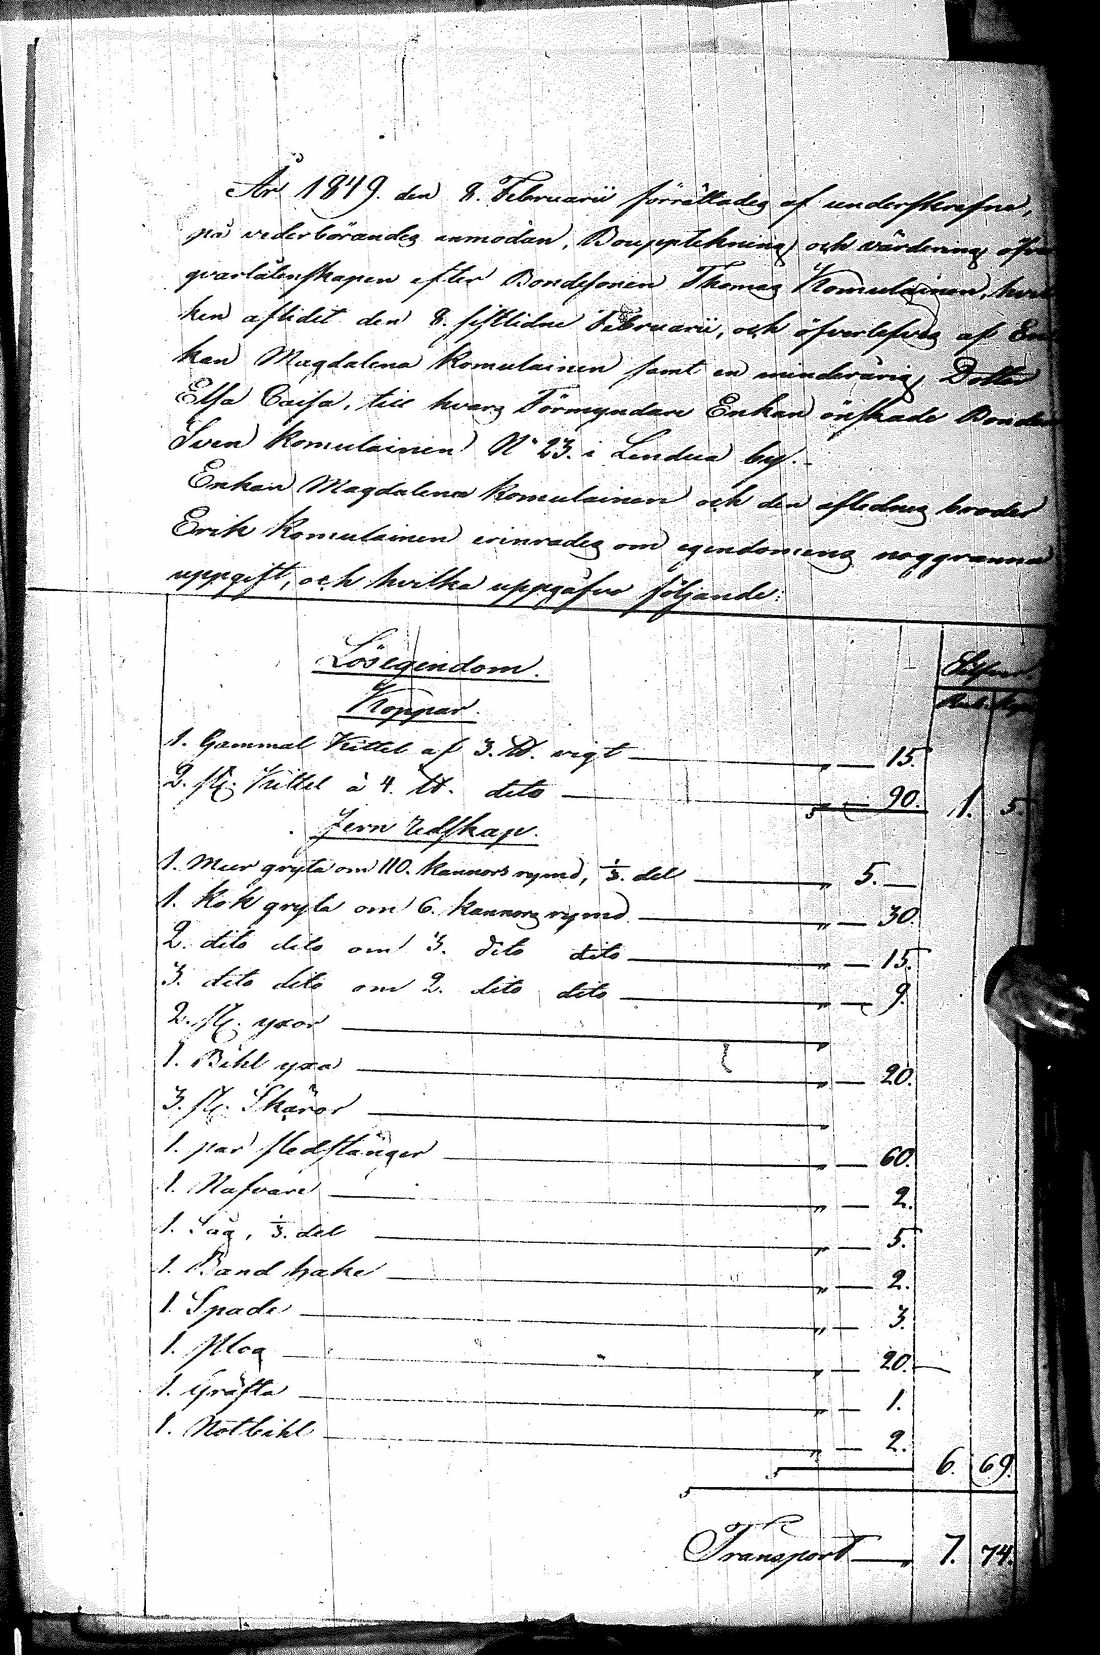 År 1849. den 8. Februarii förrättades af underskrefne,
på vederbörandes anmodan, Boupptekning och värdering öfver
qvarlåtenskapen efter Bondesonen Thomas Komulainen, hvil
ken aflidit den 8. sistlidne Februarii, och öfverlefves af En
kan Magdalena Komulainen samt en minderårig Dotter
Elsa Caisa, till hvars Förmyndare Enkan önskade Bonden
Sven Komulainen N° 23. i Lendua by.
Enkan Magdalena Komulainen och den aflidnes broder
Erik Komulainen erinrades om egendomens noggranna
uppgift, och hvilka uppgåfvo följande:
Lösegendom. Silfver.
Koppar. Rub. Kop.
1. Gammal Kittel af 3. ℔. vigt „ — 15.
2. st. Kittel à 4. ℔. dito „ — 90. 1. 5.
Jern redskap.
1. Mur gryta om 110. kannors rymd, 1/3. del „ 5. —
1. Kok gryta om 6. kannors rymd „ — 30.
2. dito dito om 3. dito dito „ — 15.
3. dito dito om 2. dito dito „ — 9.
2. st. yxor „
1. Bihl yxa „ — 20.
3. st. Skäror „
1. par sledstänger „ — 60.
1. Nafvare „ — 2.
1. Såg, 1/3. del „ — 5.
1. Band hake „ — 2.
1. Spade „ — 3.
1. Plog „ — 20.
1. Gräfta „ — 1.
1. Notbihl „ — 2. 6. 69.
Transport „ 7. 74.